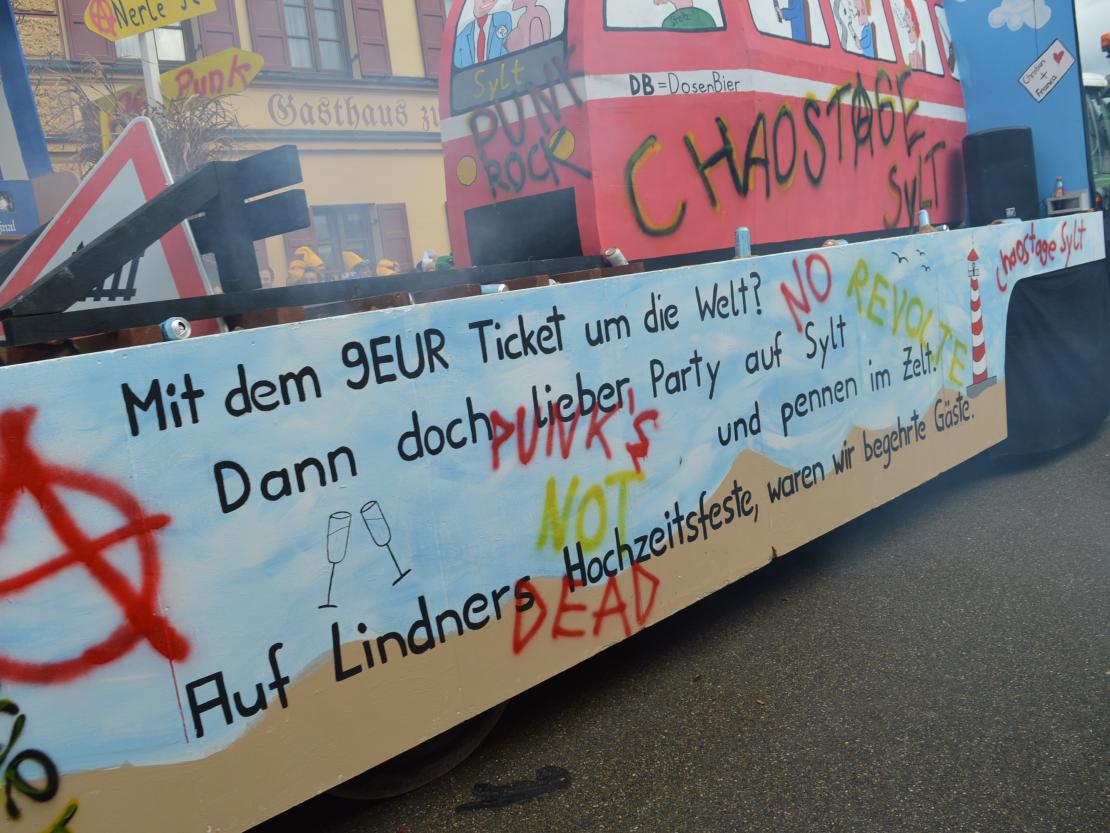 Punk
Gasthaus
Sylt
PUNK
ROCK
DB=DosenBier
CHAOSTAGE
Sylt
Christian
+
Franca
Chaostage Sylt
NO
REVOLTE
Mit dem 9EUR Ticket um die Welt?
Dann doch lieber Party auf Sylt
und pennen im Zelt.
Auf Lindners Hochzeitsfeste, waren wir begehrte Gäste.
PUNK'S
NOT
DEAD